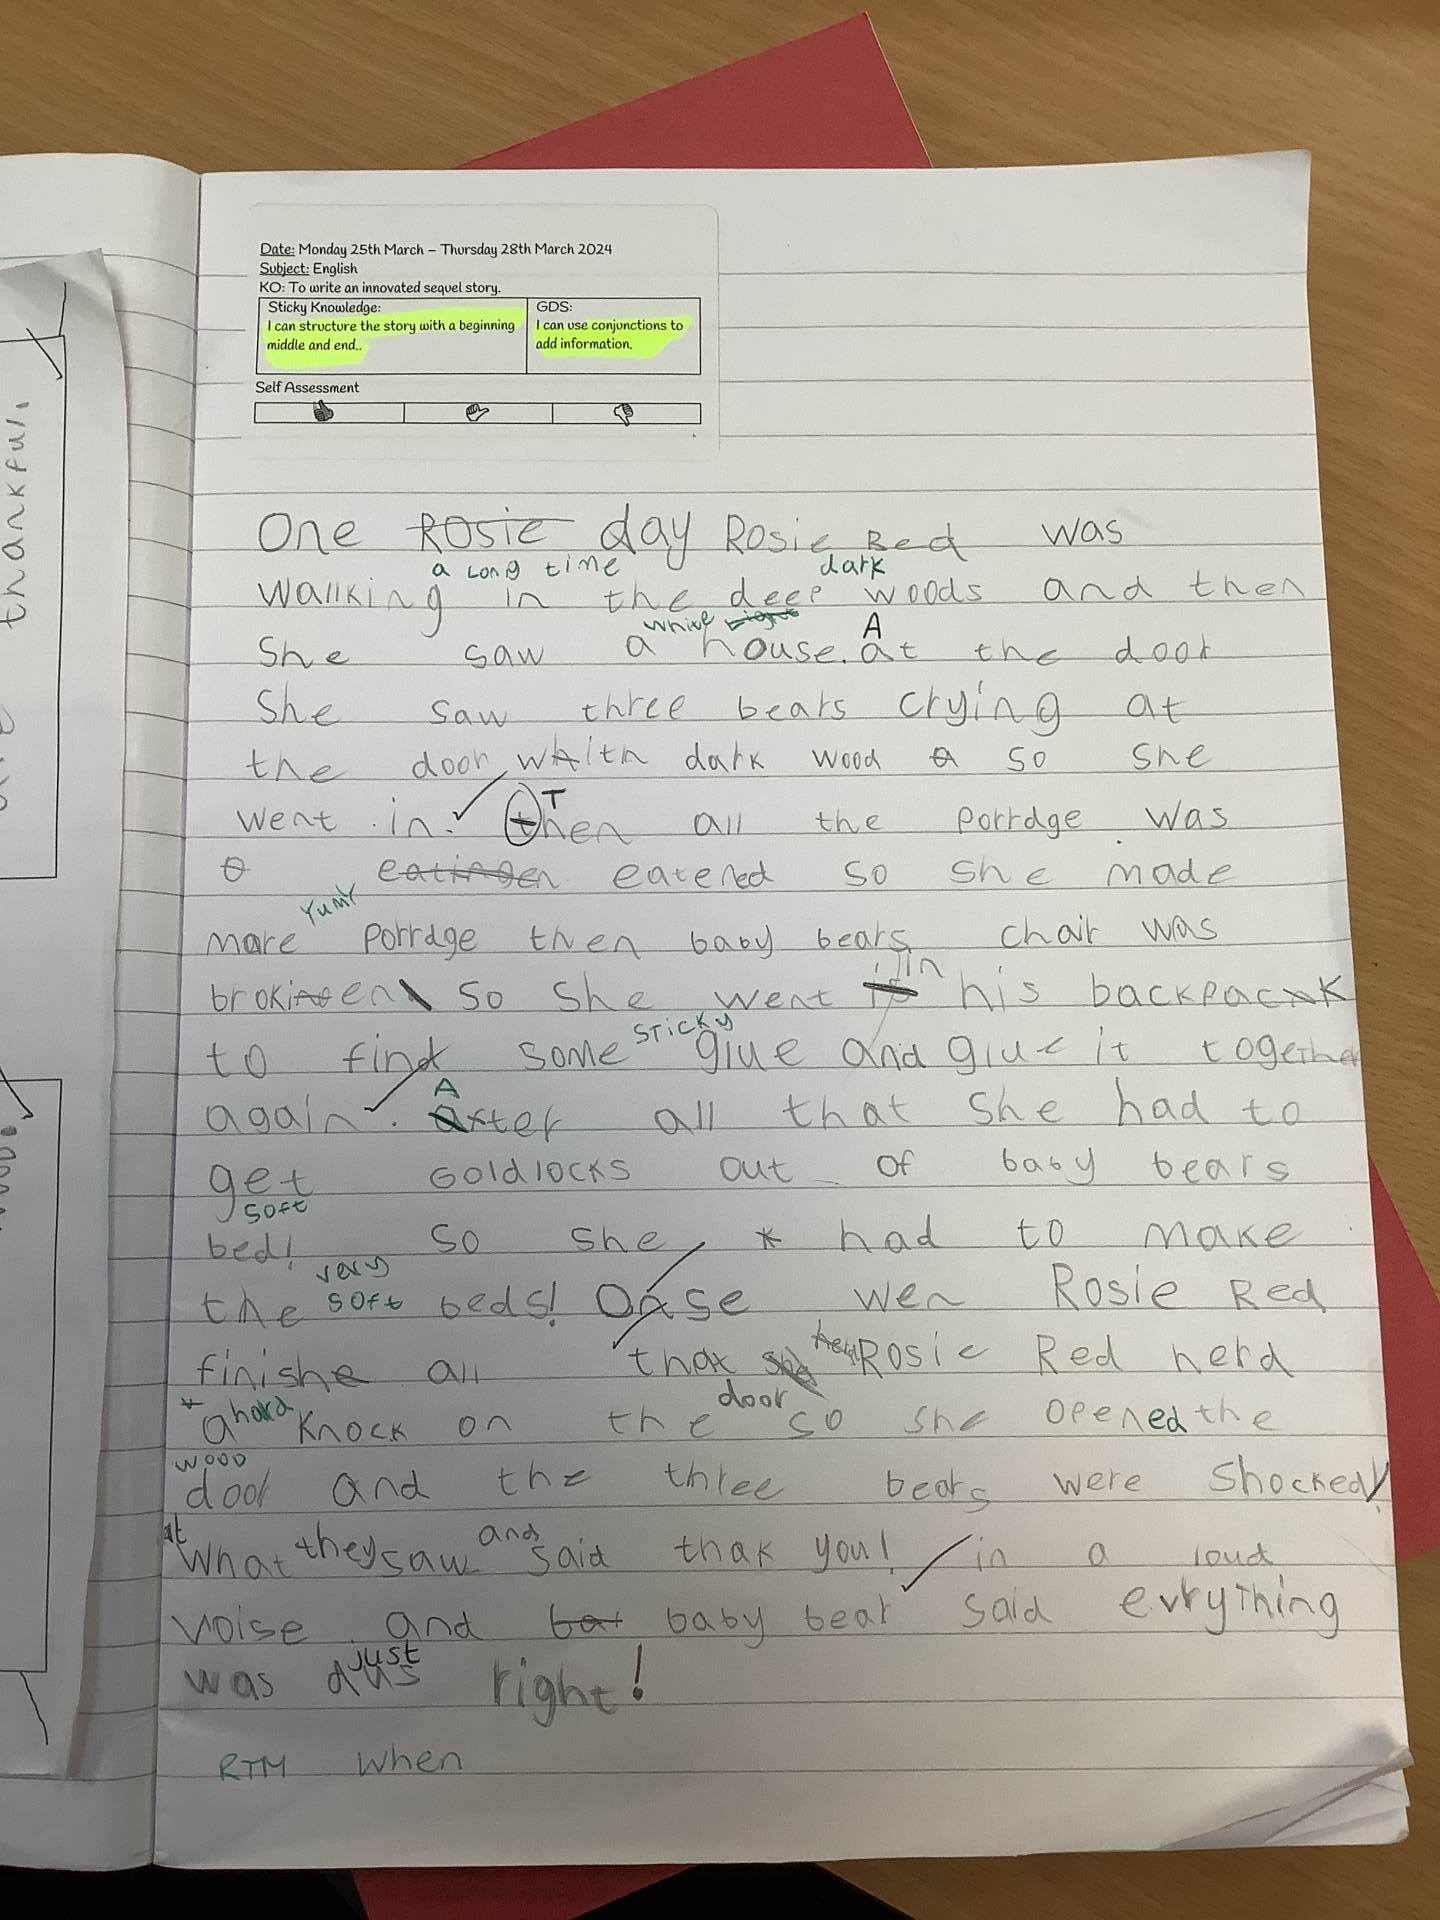 Date: Monday 25th March – Thursday 28th March 2024
Subject: English
KO: To write an innovated sequel story.
Sticky Knowledge:
I can structure the story with a beginning
middle and end..
GDS:
I can use conjunctions to
add information.
Self Assessment
thankful.
One Rosie day Rosie Red was
a long time dark
wallking in the deep woods and then
white
She saw a house. A at the door
She saw three bears crying at
the door whith dark wood a so she
went in. T then all the porrdge was
eatingen eatened so she made
yumy
more porrdge then baby bears chair was
in
brokinen so she went is his backpack
sticky
to find some glue and glue it together
A
again. after all that she had to
get Goldlocks out of baby bears
soft
bed! so she * had to make
very
the soft beds! Onse wen Rosie Red
finishe all that she Rosie Red herd
* hard door
a knock on the so she opened the
wood
door and the three bears were shocked!
at they and
What saw said thak you! in a loud
voise and bat baby bear said evrything
just
was dus right!
RTM When